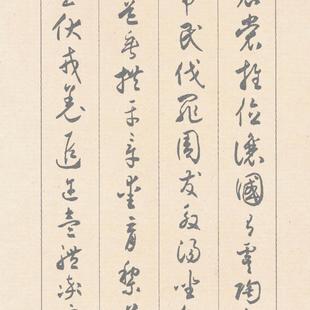 裳推位讓國有虞陶
弔民伐罪周發殷湯坐
道垂拱平章愛育黎首
臣伏戎羌遐邇壹體率